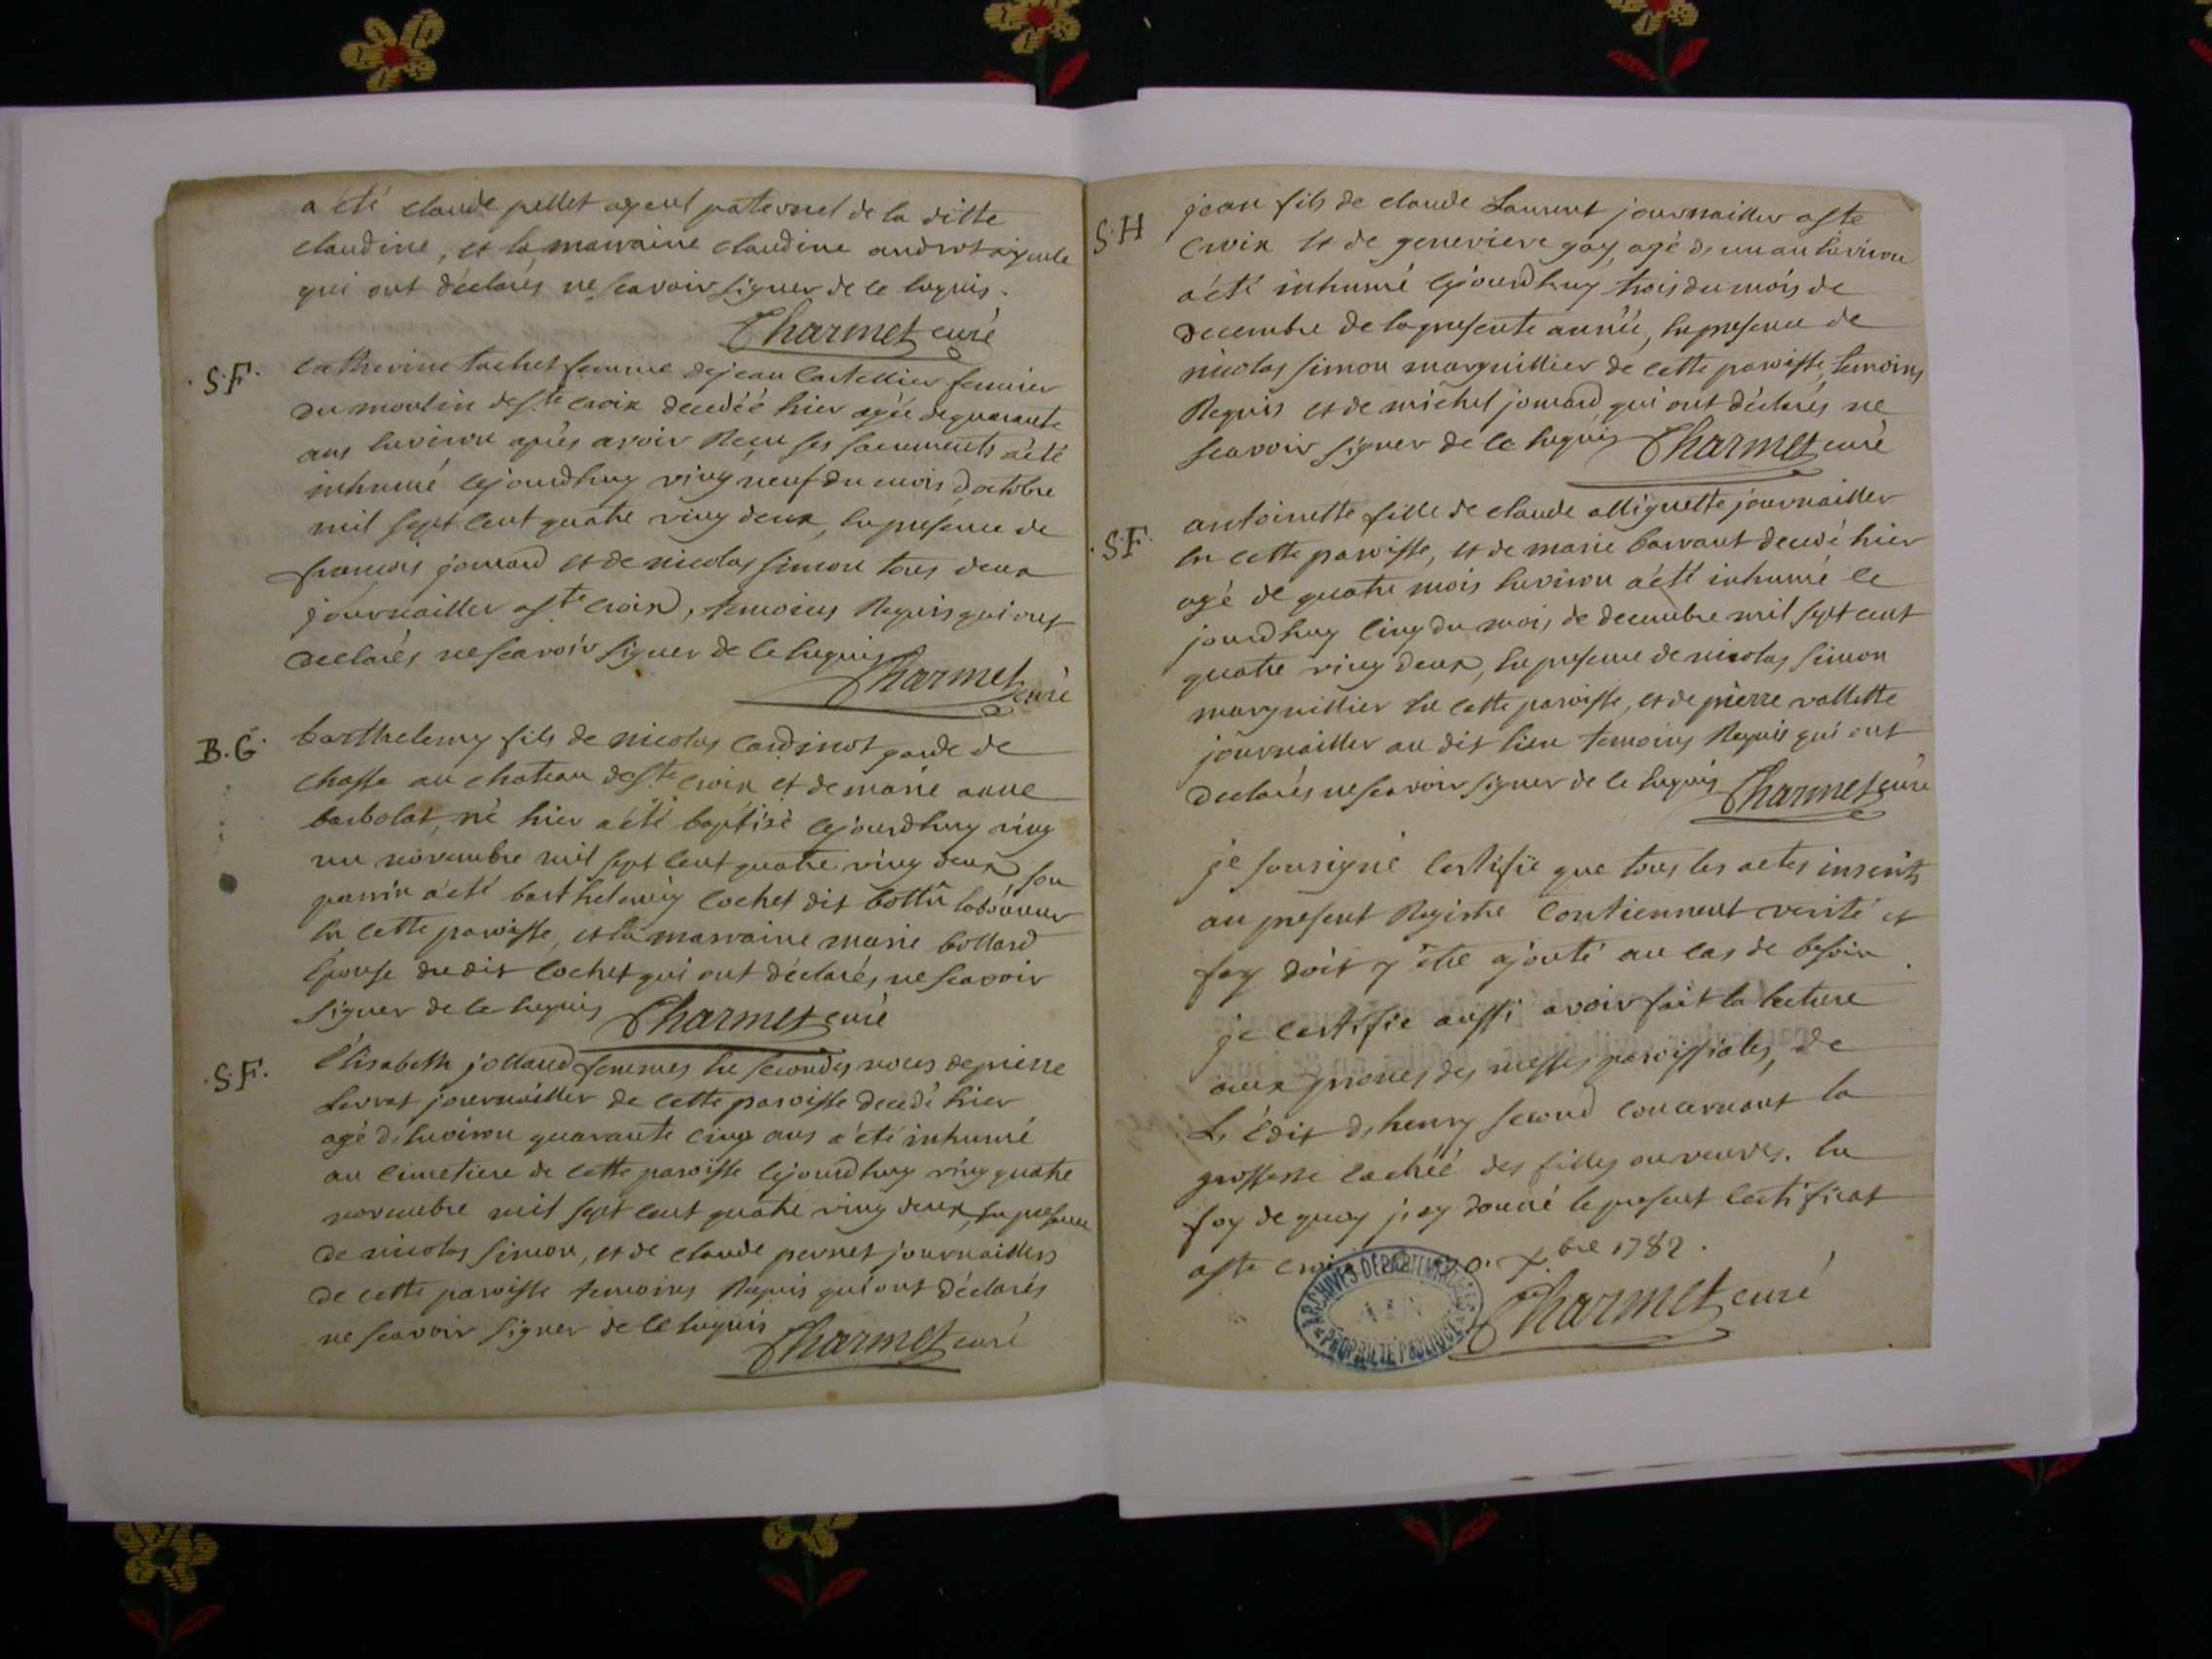 a été claude pellet ayeul paternel de la ditte
claudine, et la marraine claudine androt ayeule
qui ont déclarés ne scavoir signer de ce enquis.
Charmet curé
S.F. catherine tachet femme de jean castellier fermier
du moulin de ste croix decedéé hier agée de quarante
ans environ aprés avoir Recu ses sacuments a été
inhumé cejourdhuy ving neuf du mois doctobre
mil sept cent quatre ving deux, en presence de
francois jomard et de nicolas simon tous deux
journailler a ste croix, temoins Requis qui ont
declarés ne scavoir signer de ce enquis
Charmet curé
B.G. barthelemy fils de nicolas cardinot garde de
chasse au chateau de ste croix et de marie anne
barbolat, né hier a été baptisé cejourdhuy ving
un novembre mil sept cent quatre ving deux son
parrin a été barthelemy cochet dit bottu laboureur
en cette paroisse, et la marraine marie bollard
épouse du dit cochet qui ont déclarés ne scavoir
signer de ce enquis Charmet curé
S.F. élisabeth jolland femmes en secondes noces de pierre
servat journailler de cette paroisse decedé hier
agé denviron quarante cinq ans a été inhumé
au cimetiere de cette paroisse cejourdhuy ving quatre
novembre mil sept cent quatre ving deux, en presence
de nicolas simon, et de claude pernet journaillers
de cette paroisse temoins Requis qui ont déclarés
ne scavoir signer de ce enquis Charmet curé
S.H jean fils de claude Laurent journailler a ste
croix et de genevieve gay, agé d'un an environ
a été inhumé cejourdhuy trois du mois de
decembre de la presente année, en presence de
nicolas simon marguillier de cette paroisse, temoins
Requis et de michel jomard, qui ont déclarés ne
scavoir signer de ce enquis Charmet curé
S.F. antoinette fille de claude alliguette journailler
en cette paroisse, et de marie barraut decedé hier
agé de quatre mois environ a été inhumé ce
jourdhuy cinq du mois de decembre mil sept cent
quatre ving deux, en presence de nicolas simon
marguillier en cette paroisse, et de pierre vallette
journailler au dit lieu temoins Requis qui ont
declarés ne scavoir signer de ce enquis Charmet curé
je sousigné certifie que tous les actes inscrits
au present Registre contiennent verité et
foy doit y être ajouté au cas de besoin.
je certifie aussi avoir fait la lecture
aux prones des messes paroissiales, de
L'édit d'henry second concernant la
grossesse cachéé des filles ou veuves. en
foy de quoy j'ay donné le present certificat
a ste croix xbre 1782.
Charmet curé
ARCHIVES DÉPARTEMENTALES
AIN
PROPRIÉTÉ PUBLIQUE